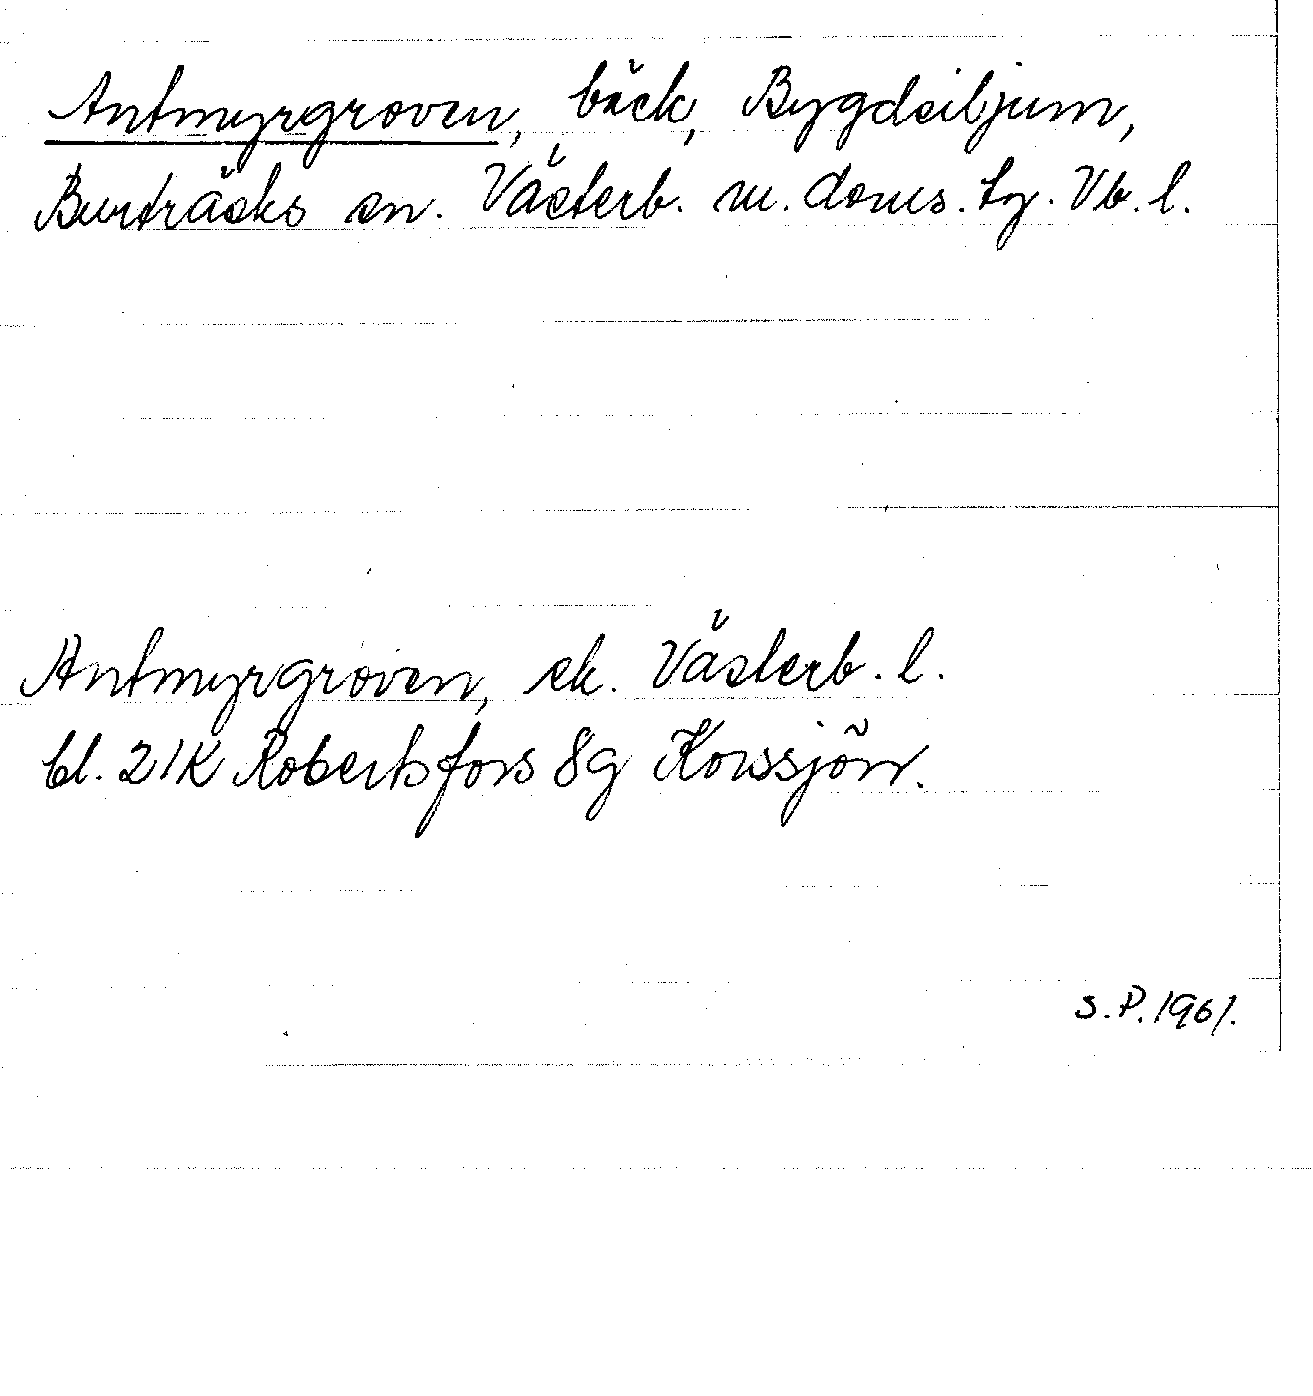 Antmyrgroven, bäck, Bygdeiljum,
Burträsks sn. Västerb. m. doms. tg. Vb. l.
Antmyrgroven, ek. Västerb. l.
bl. 21K Robertsfors 8g Korssjön.
S.P. 1961.